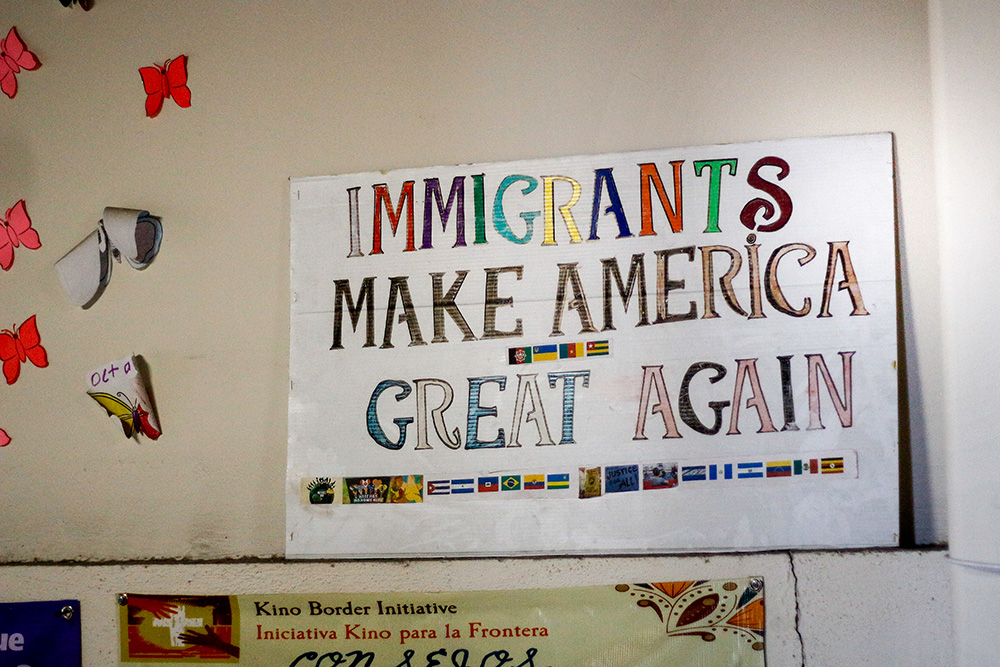 IMMIGRANTS
MAKE AMERiCA
GREAT AGAIN
JUSTICE
ALLY
Octa
ue
Kino Border Initiative
Iniciativa Kino para la Frontera
CONSEJOS